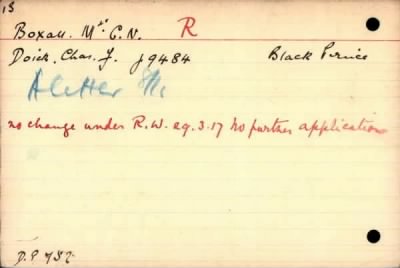 15
Boxall. Mrs C. N. R
Doick. Chas. J. J9484 Black Prince
A letter
no change under R.W. 29.3.17 No further application
D.P.